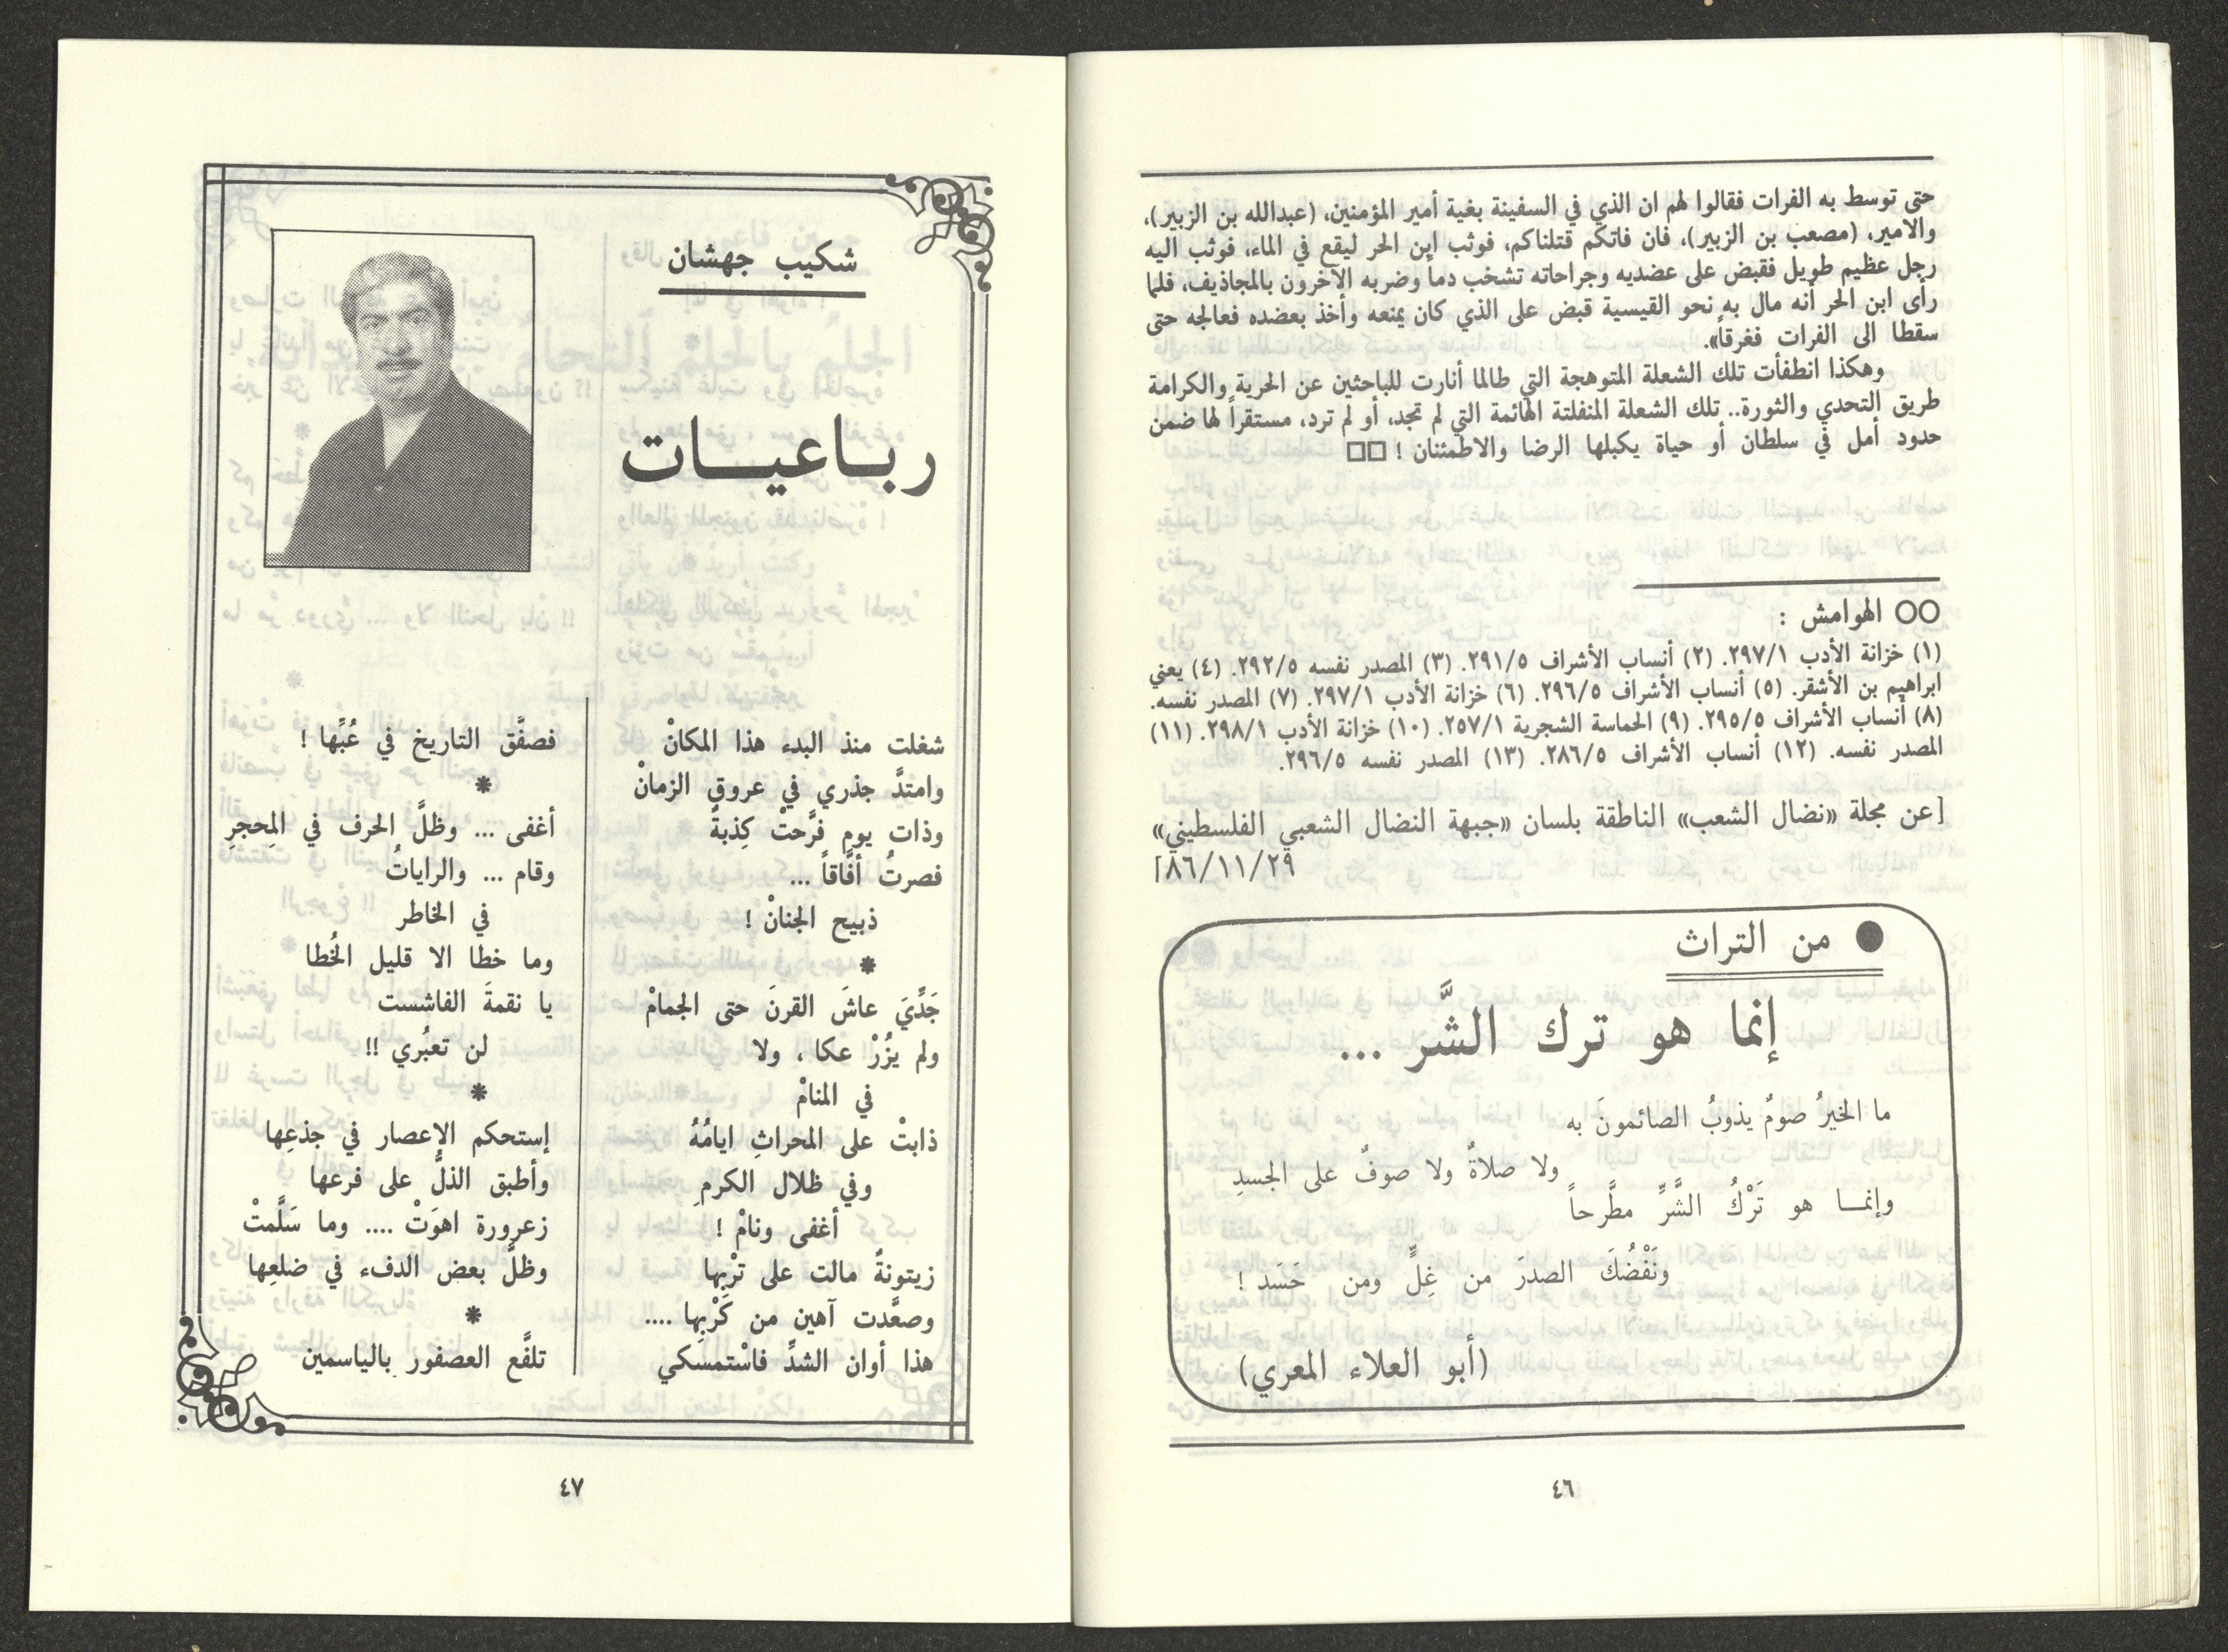 حتى توسط به الفرات فقالوا لهم ان الذي في السفينة بغية أمير المؤمنين، (عبدالله بن الزبير)،
والامير، (مصعب بن الزبير)، فان فاتكم قتلناكم، فوثب ابن الحر ليقع في الماء، فوثب اليه
رجل عظيم طويل فقبض على عضديه وجراحاته تشخب دماً وضربه الآخرون بالمجاذيف، فلما
رأى ابن الحر أنه مال به نحو القيسية قبض على الذي كان يمنعه وأخذ بعضده فعالجه حتى
سقطا الى الفرات فغرقاً».
وهكذا انطفأت تلك الشعلة المتوهجة التي طالما أنارت للباحثين عن الحرية والكرامة
طريق التحدي والثورة.. تلك الشعلة المنفلتة الهائمة التي لم تجد، أو لم ترد، مستقراً لها ضمن
حدود أمل في سلطان أو حياة يكبلها الرضا والاطمئنان ! □□
○○ الهوامش :
(١) خزانة الأدب ٢٩٧/١. (٢) أنساب الأشراف ٢٩١/٥. (٣) المصدر نفسه ٢٩٢/٥. (٤) يعني
ابراهيم بن الأشقر. (٥) أنساب الأشراف ٢٩٦/٥. (٦) خزانة الأدب ٢٩٧/١. (٧) المصدر نفسه.
(٨) أنساب الأشراف ٢٩٥/٥. (٩) الحماسة الشجرية ٢٥٧/١. (١٠) خزانة الأدب ٢٩٨/١. (١١)
المصدر نفسه. (١٢) أنساب الأشراف ٢٨٦/٥. (١٣) المصدر نفسه ٢٩٦/٥.
[عن مجلة «نضال الشعب» الناطقة بلسان «جبهة النضال الشعبي الفلسطيني»
٨٦/١١/٢٩]
● من التراث
إنما هو ترك الشَّر ...
ما الخيرُ صومٌ يذوبُ الصائمونَ به
ولا صلاةٌ ولا صوفٌ على الجسدِ
وإنمـا هو تَرْكُ الشَّرِّ مطَّرحاً
ونَفْضُكَ الصدرَ من غِلٍّ ومن حَسَد !
(أبو العلاء المعري)
٤٦
شكيب جهشان
ربـاعيـات
شغلت منذ البدء هذا المكانْ
وامتدَّ جذري في عروقِ الزمانْ
وذات يومٍ فرَّحتْ كِذبةٌ
فصرتُ أفَّاقاً ...
ذبيح الجنانْ !
*
جَدِّيَ عاشَ القرنَ حتى الجمامْ
ولم يزُرْ عكا ، ولا
في المنامْ
ذابتْ على المحراثِ ايامُهُ
وفي ظلال الكرمِ
أغفى ونامْ !
زيتونةٌ مالت على تَرْبِها
وصعَّدت آهين من كَرْبِها ....
هذا أوان الشدِّ فاسْتمسكي
فصفَّق التاريخ في عُبِّها !
*
أغفى ... وظلَّ الحرف في المِحجرِ
وقام ... والراياتُ
في الخاطر
وما خطا الا قليل الخُطا
يا نقمةَ الفاشست
لن تعبُري !!
*
إستحكم الإعصار في جذعِها
وأطبق الذلُّ على فرعها
زعرورة اهوَتْ .... وما سَلَّمتْ
وظلَّ بعض الدفء في ضلعِها
*
تلفَّع العصفور بالياسمين
٤٧